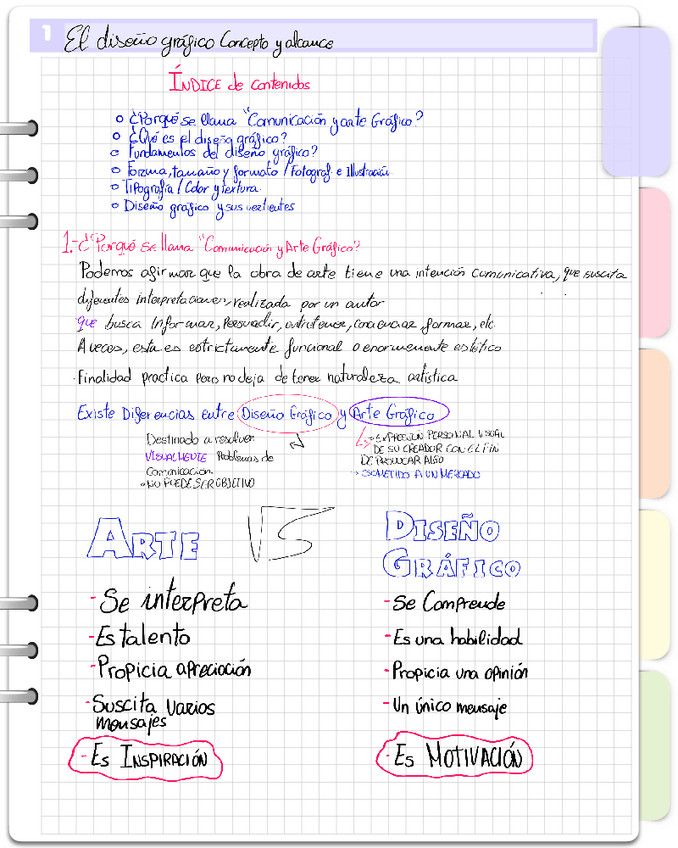 1 El diseño gráfico Concepto y alcance
ÍNDICE de contenidos
o ¿Porqué se llama "Comunicación y arte Gráfico?
o ¿Qué es el diseño gráfico?
o Fundamentos del diseño gráfico?
o Forma, tamaño y formato / Fotograf. e Ilustración
o Tipografía / Color y textura
o Diseño gráfico y sus vertientes
1.-¿"Porqué se llama "Comunicación y Arte Gráfico"?
Podemos afirmar que la obra de arte tiene una intención comunicativa, que suscita
diferentes interpretaciones, realizada por un autor
que busca Informar, Persuadir, entretener, concienciar formar, etc
A veces, esta es estrictamente funcional o enormemente estético
.Finalidad practica pero no deja de tener naturaleza artística
Existe Diferencias entre Diseño Gráfico y Arte Gráfico
Destinado a resolver
VISUALMENTE Problemas de
Comunicación.
- NO PUEDE SER OBJETIVO
- EXPRESIÓN PERSONAL VISUAL
DE SU CREADOR CON EL FIN
DE PROVOCAR ALGO
- SOMETIDO A UN MERCADO
ARTE VS DISEÑO
GRÁFICO
- Se interpreta
- Es talento
- Propicia apreciación
- Suscita varios
mensajes
- Es INSPIRACIÓN
- Se Comprende
- Es una habilidad
- Propicia una opinión
- Un único mensaje
- Es MOTIVACIÓN